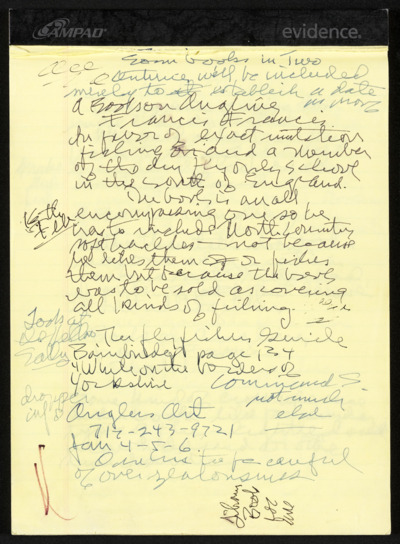 AMPAD evidence.
Some books in Two
Centuries will be included
merely to establish a date
or more
A Book on Angling
Francis Francis
In favor of exact imitation
fishing and a member
of the dry fly only school
in the south of England.
The book is an all
encompassing one so he
has to include North Country
soft hackles — not because
he likes them or fishes
them but because the book
was to be sold as covering
all kinds of fishing.
Look at
The fly fishers Guide
Bainbridge page 134
White on the borders of
Yorkshire
Command S
not much
else
Anglers Art
717-243-9721
Jan 4-5-6
to be careful
of over zealousness
Book
for
me